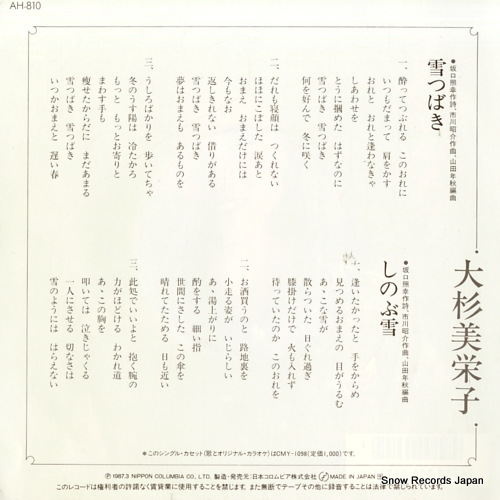 AH-810
●坂口照幸作詩、市川昭介作曲、山田年秋編曲
雪つばき
一、酔ってつぶれる このおれに
いつもだまって 肩をかす
おれと おれと逢わなきゃ
しあわせを
とうに掴めた はずなのに
雪つばき 雪つばき
何を好んで 冬に咲く
二、だれも寝顔は つくれない
ほほにこぼした 涙あと
おまえ おまえだけには
今もなお
返しきれない 借りがある
雪つばき 雪つばき
夢はおまえも あるものを
三、うしろばかりを 歩いてちゃ
冬のうす陽は 冷たかろ
もっと もっとお寄りと
まわす手も
痩せたからだに まだあまる
雪つばき 雪つばき
いつかおまえと 遅い春
大杉美栄子
●坂口照幸作詩、市川昭介作曲、山田年秋編曲
しのぶ雪
一、逢いたかったと 手をからめ
見つめるおまえの 目がうるむ
あゝこな雪が
散らついた 日ぐれ過ぎ
膝掛けだけで 火も入れず
待っていたのか このおれを
二、お酒買うのと 路地裏を
小走る姿が いじらしい
あゝ湯上がりに
酌をする 細い指
世間にさした この傘を
晴れてたためる 日も近い
三、此処でいいよと 抱く腕の
力がほどける わかれ道
あゝこの胸を
叩いては 泣きじゃくる
一人にさせる 切なさは
雪のようには はらえない
＊このシングル・カセット(歌とオリジナル・カラオケ)はCMY-1098(定価1,000)です。
Ⓟ1987.3 NIPPON COLUMBIA CO., LTD. 製造・発売元/日本コロムビア株式会社 MADE IN JAPAN
このレコードは権利者の許諾なく賃貸業に使用することを禁じます。また無断でテープその他に録音することは法律で禁じられています。
Snow Records Japan